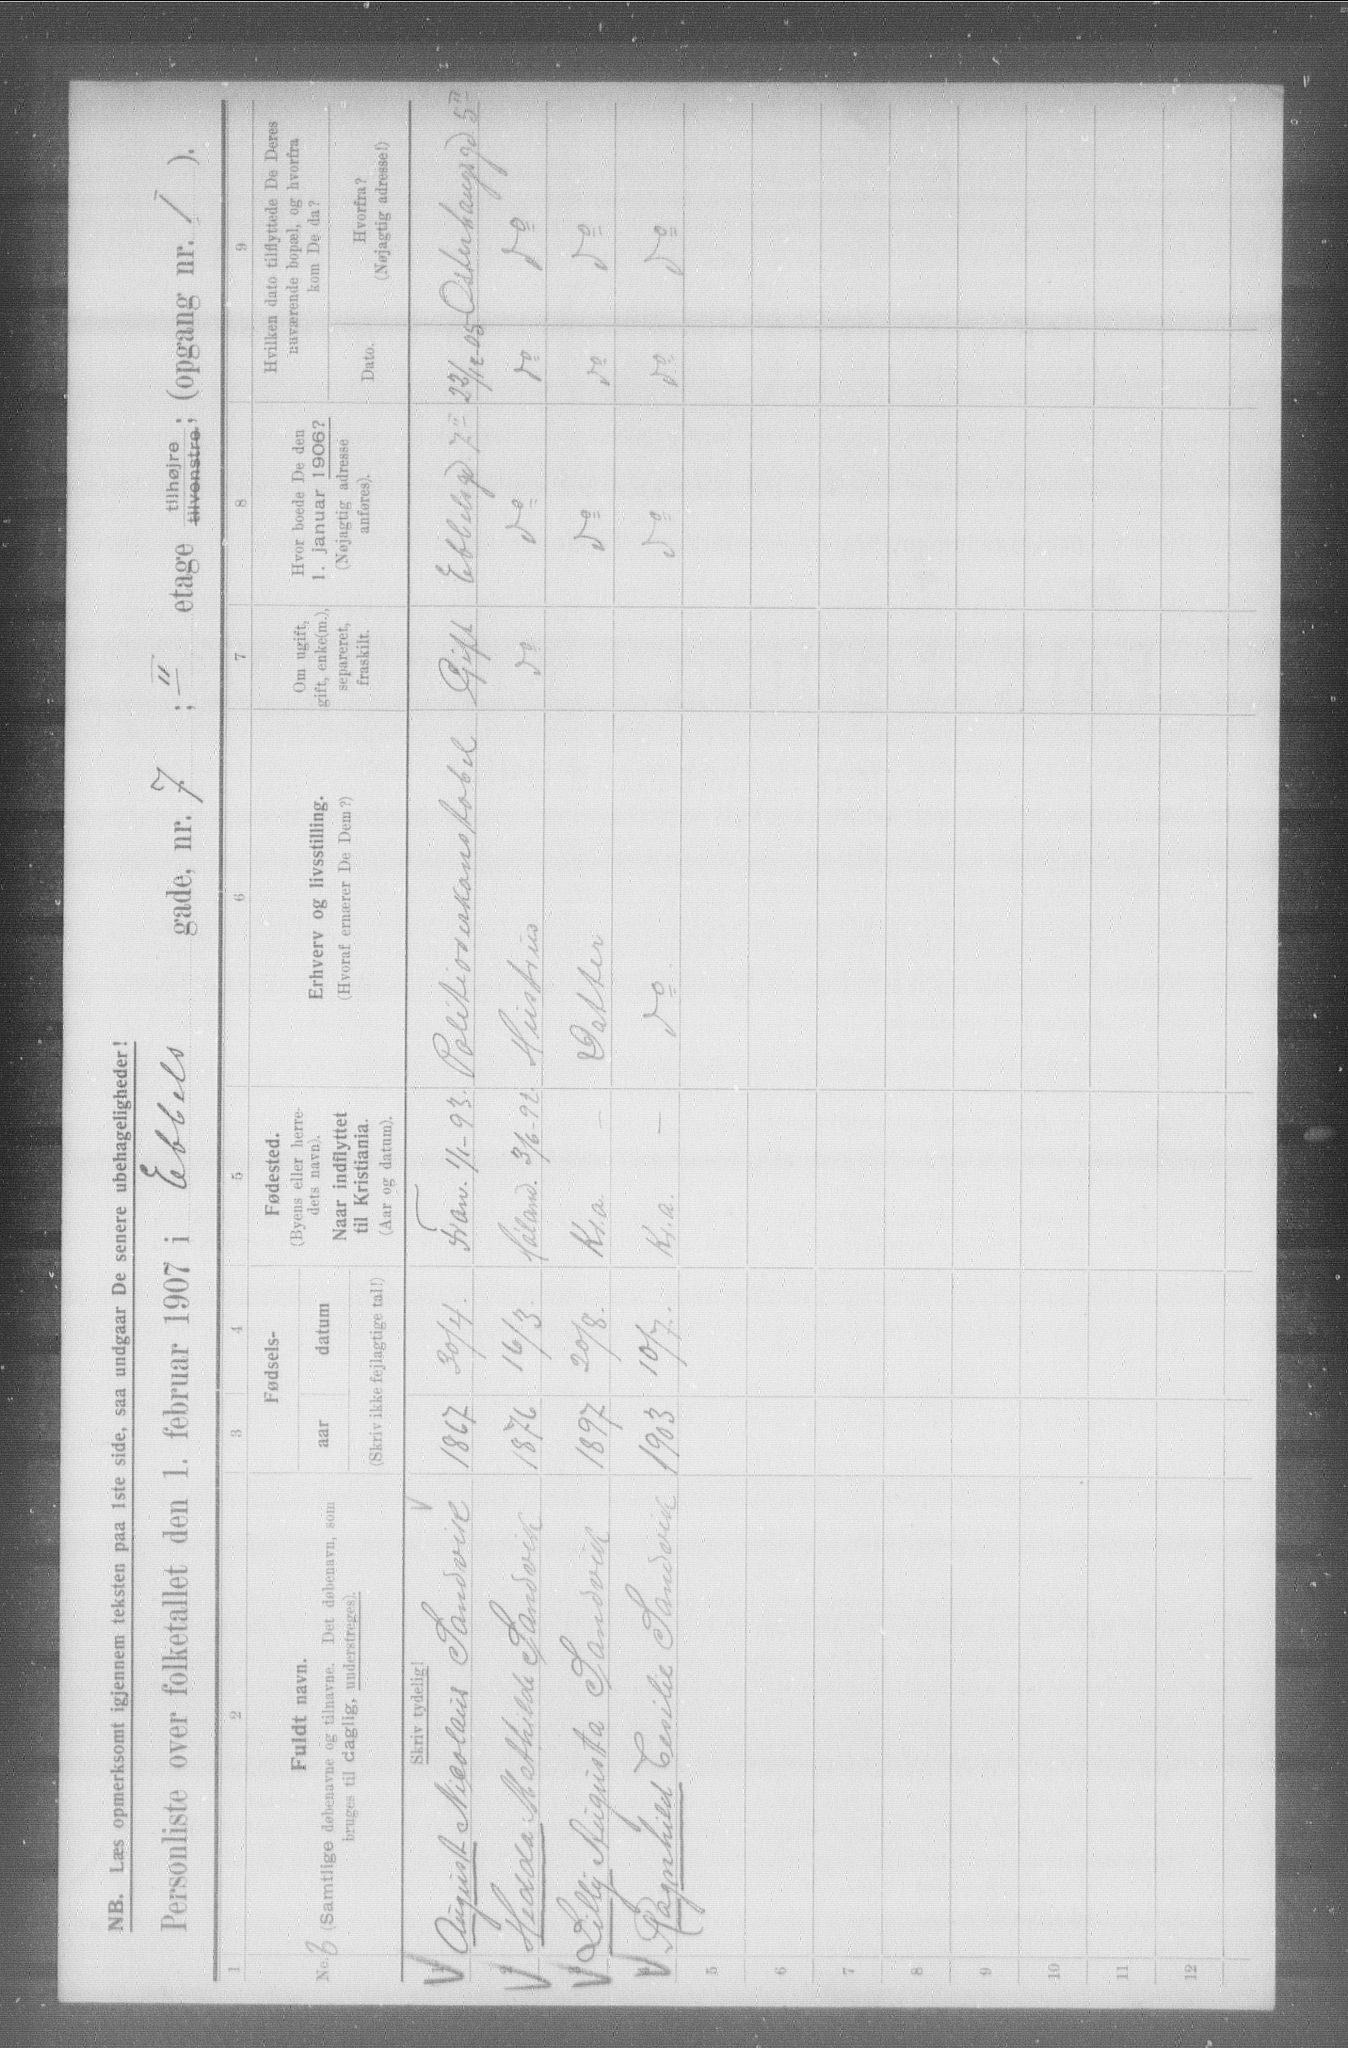 NB. Læs opmerksomt igjennem teksten paa 1ste side, saa undgaar De senere ubehageligheder!
Personliste over folketallet den 1. februar 1907 i Ebbels gade, nr. 7 ; II etage tilhøjre tilvenstre; (opgang nr. 1 ).
1 2 3 4 5 6 7 8 9
No. Fuldt navn. (Samtlige døbenavne og tilnavne. Det døbenavn, som bruges til daglig, understreges). Fødsels- aar datum (Skriv ikke fejlagtige tal!) Fødested. (Byens eller herredets navn). Naar indflyttet til Kristiania. (Aar og datum). Erhverv og livsstilling. (Hvoraf ernærer De Dem?) Om ugift, gift, enke(m.), separeret, fraskilt. Hvor boede De den 1. januar 1906? (Nøjagtig adresse anføres). Hvilken dato tilflyttede De Deres nuværende bopæl, og hvorfra kom De da? Dato. Hvorfra? (Nøjagtig adresse!)
Skriv tydelig!
1 August Nicolais Sandvik 1867 30/4. 1/1-93. Politioverkonstabel Gift Ebbelsgd. 7 II 23/12-05 Osterhausgd 5 II
2 Hedda Mathilde Sandvik 1876 16/3. 3/6-92. Hustrue do do do do
3 Lilly Augusta Sandvik 1897 20/8. Kr.a. — Datter do do do
4 Ragnhild Cesilie Sandvik 1903 10/7. Kr.a. — do do do do
5
6
7
8
9
10
11
12